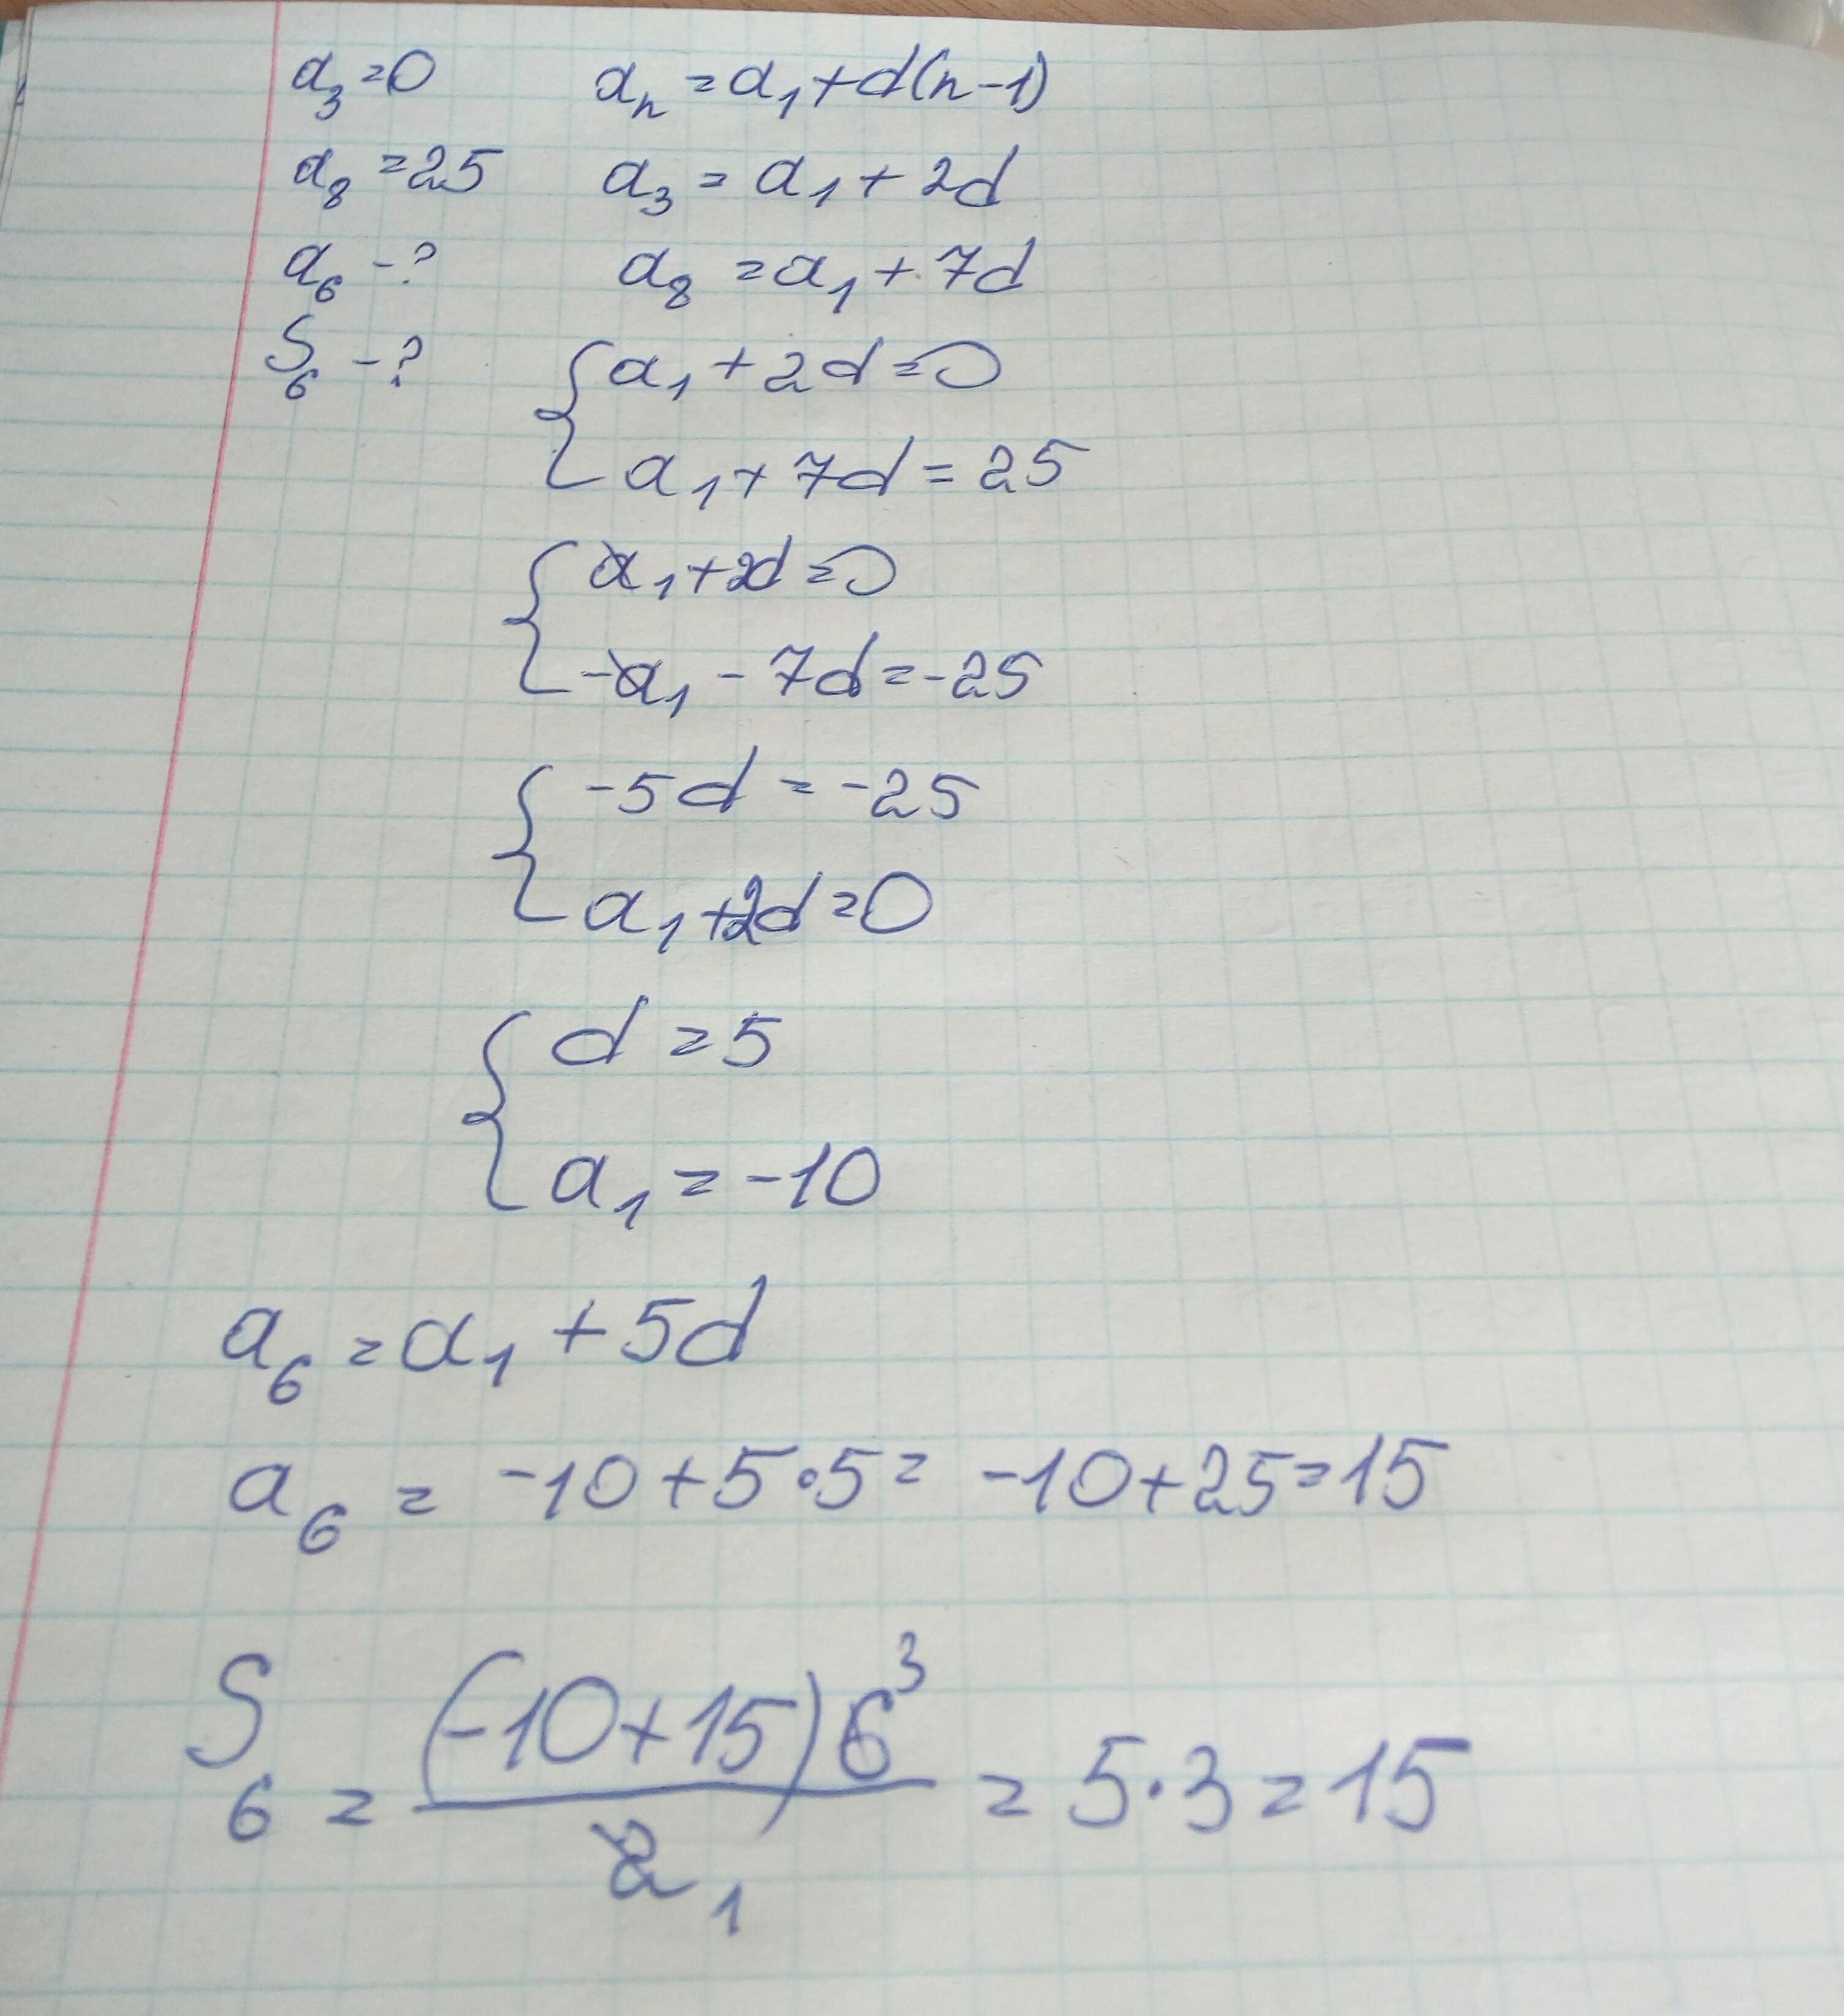 a₃ = 0 aₙ = a₁ + d(n-1)
a₈ = 25 a₃ = a₁ + 2d
a₆ - ? a₈ = a₁ + 7d
S₆ - ? { a₁ + 2d = 0
a₁ + 7d = 25
{ a₁ + 2d = 0
-a₁ - 7d = -25
{ -5d = -25
a₁ + 2d = 0
{ d = 5
a₁ = -10
a₆ = a₁ + 5d
a₆ = -10 + 5·5 = -10 + 25 = 15
S₆ = (-10+15)6³ / 2₁ = 5·3 = 15